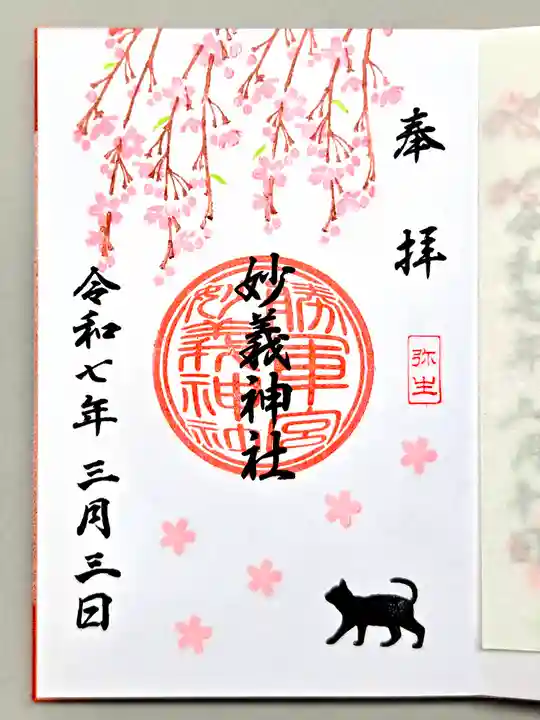 奉拝
弥生
勝軍宮
妙義神社
妙義神社
令和七年三月三日